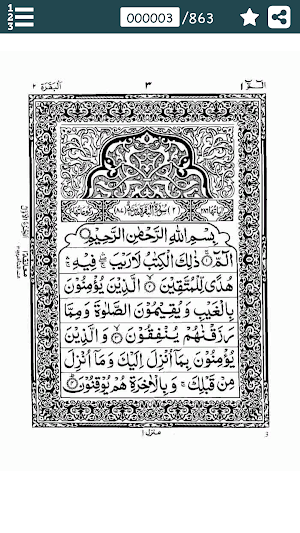 1
2
3
000003 /863
البقرة ٢
٣
الم ١
بِسْمِ اللهِ الرَّحْمٰنِ الرَّحِيْمِ
الٓمّٓ ۚ ذٰلِكَ الْكِتٰبُ لَا رَيْبَ ۛ فِيْهِ ۛ
هُدًى لِّلْمُتَّقِيْنَ الَّذِيْنَ يُؤْمِنُوْنَ
بِالْغَيْبِ وَيُقِيْمُوْنَ الصَّلٰوةَ وَمِمَّا
رَزَقْنٰهُمْ يُنْفِقُوْنَ وَالَّذِيْنَ
يُؤْمِنُوْنَ بِمَآ اُنْزِلَ اِلَيْكَ وَمَآ اُنْزِلَ
مِنْ قَبْلِكَ ۚ وَبِالْاٰخِرَةِ هُمْ يُوْقِنُوْنَ
منزل ١